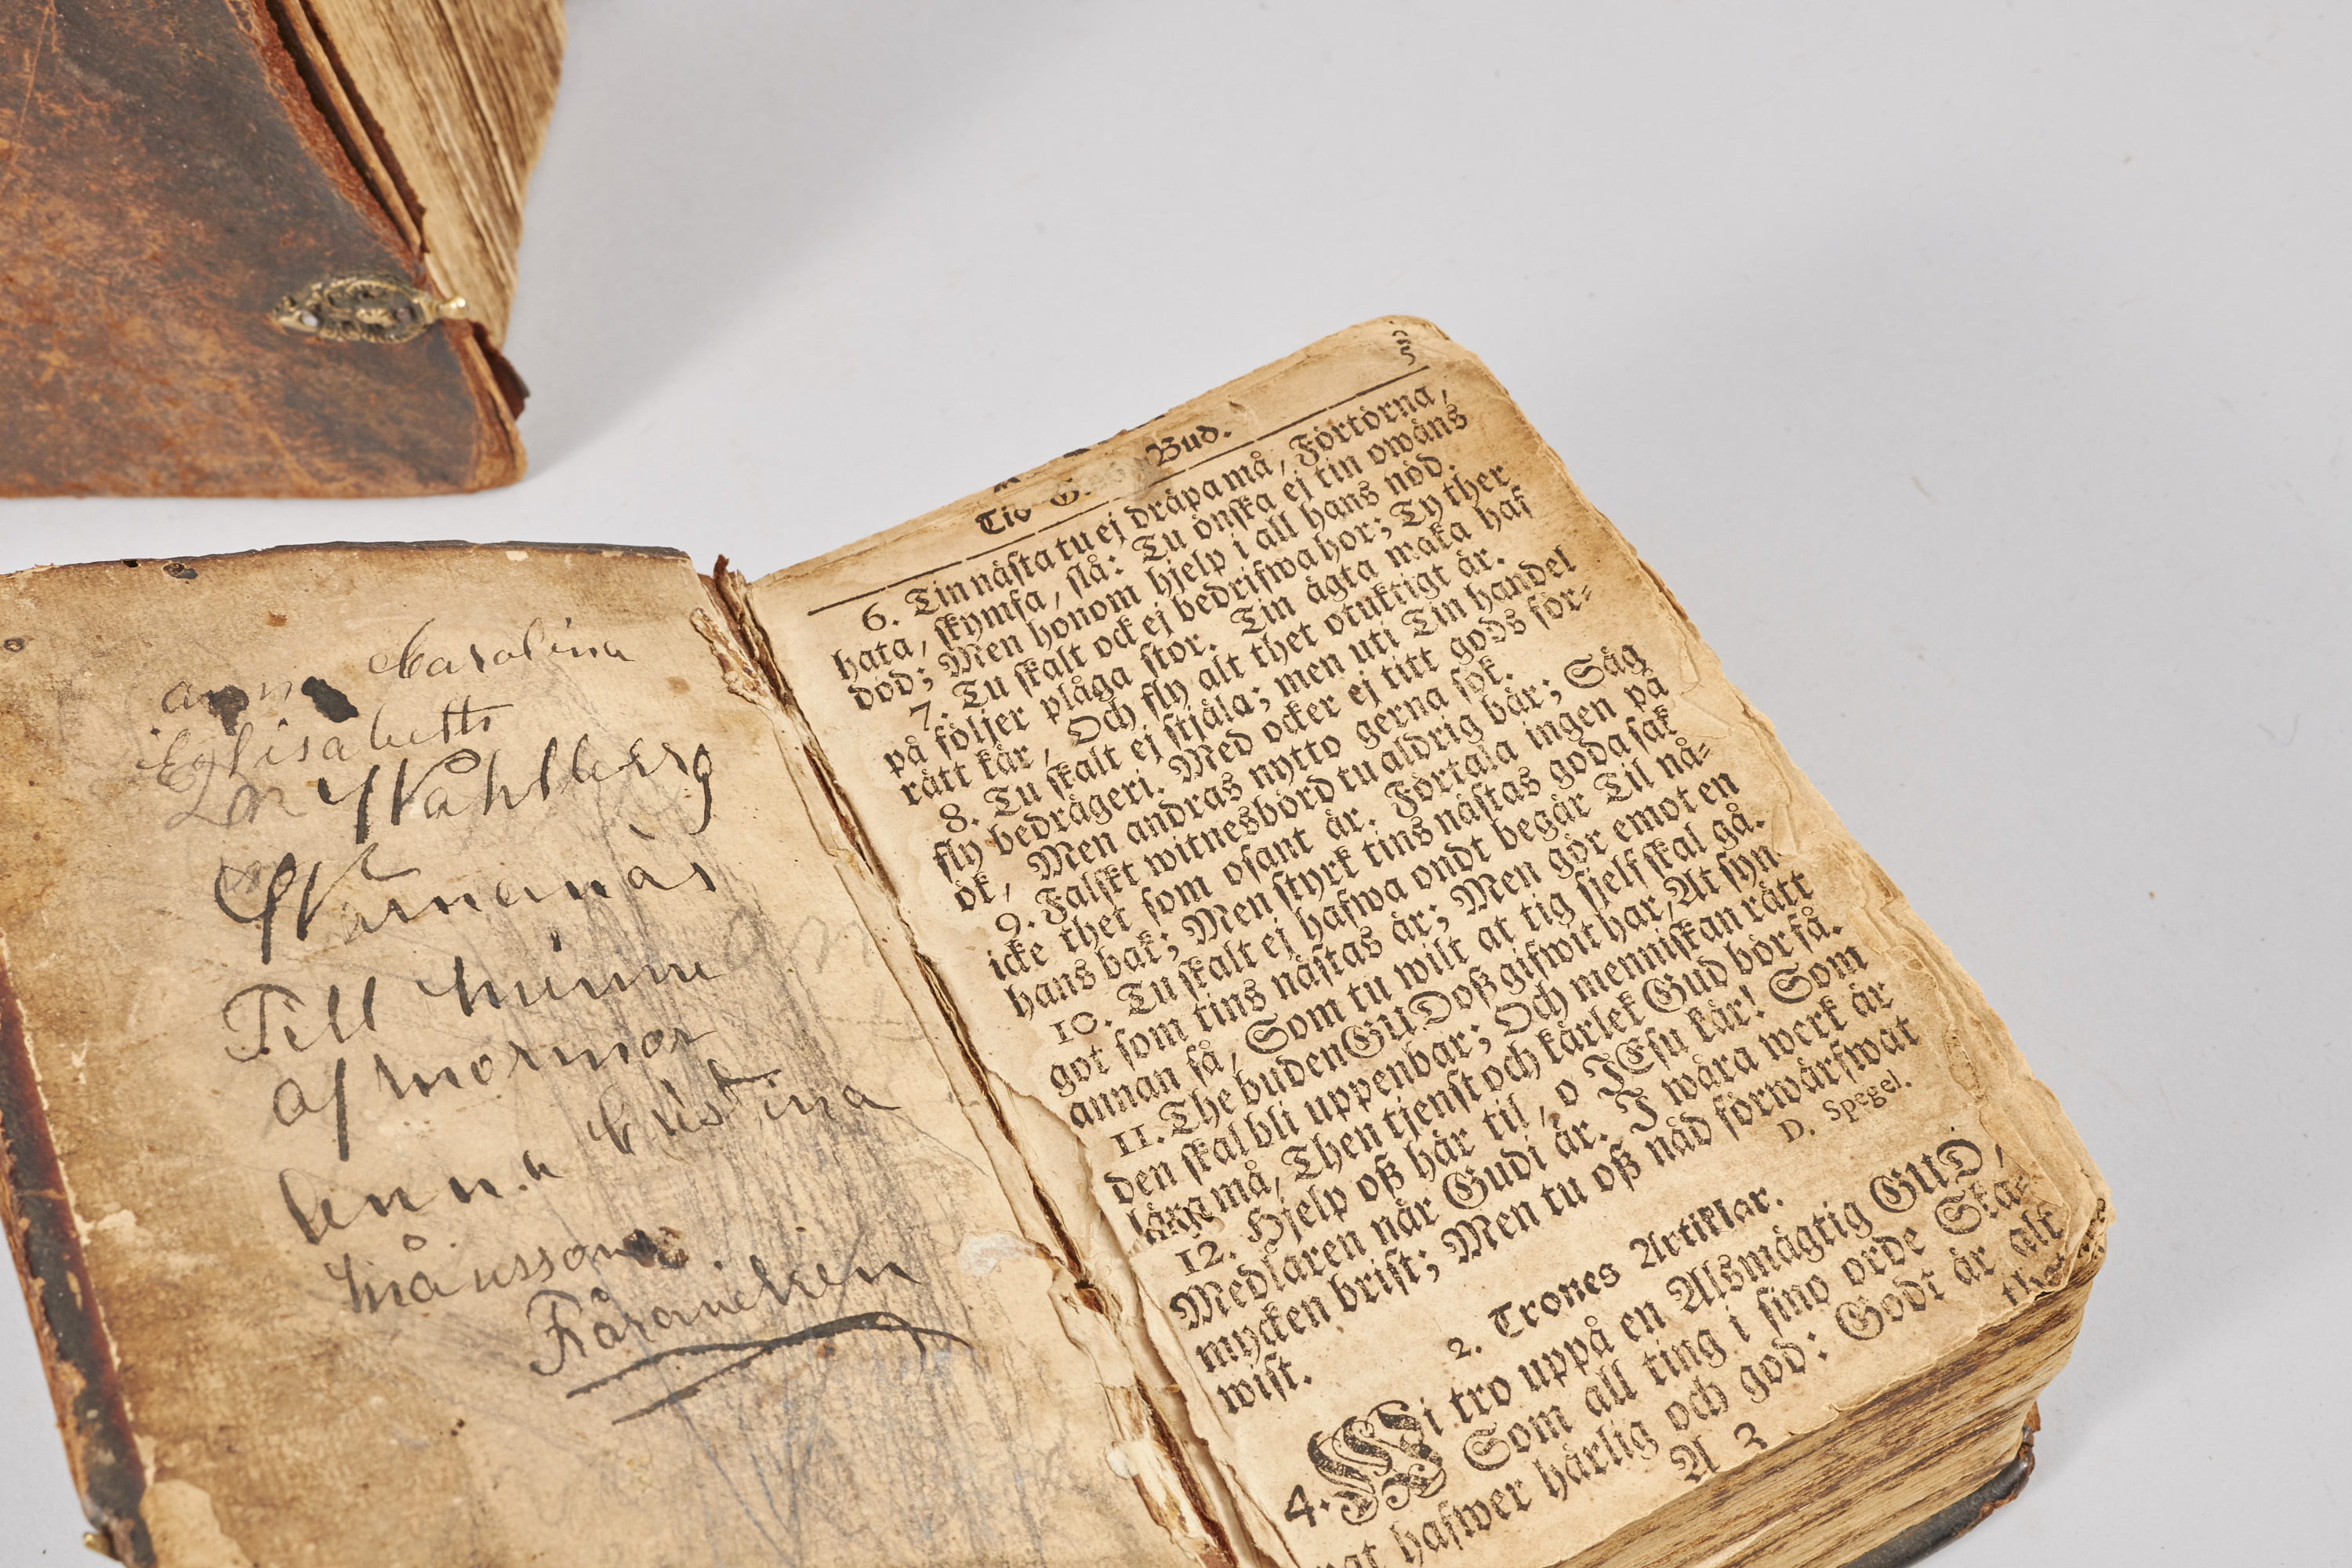 anna Karolina
Elisabeth
Wahlberg
Till minne
af mormor
Kristina
Månssons
5
Bud.
6. Tin nästa tu ej dräpa må, Förtörna,
hata, skymfa, slå: Tu önska ej tin owäns
död; Men honom hjelp i all hans nöd.
7. Tu skalt ock ej bedrifwa hor; Ty ther
på följer plåga stor. Tin ägta maka haf
rätt kär, Och fly alt thet otuktigt är.
8. Tu skalt ej stjäla; men uti Tin handel
fly bedrägeri. Med ocker ej titt gods för-
ök, Men andras nytto gerna sök.
9. Falskt witnesbörd tu aldrig bär; Säg
icke thet som osant är. Förtala ingen på
hans bak; Men styrk tins nästas goda sak
10. Tu skalt ej hafwa ondt begär Til nå-
got som tins nästas är; Men gör emot en
annan så, Som tu wilt at tig sjelf skal gå.
11. The buden GUD oß gifwit har, At syn
den skal bli uppenbar; Och menniskan rätt
lära må, Then tjenst och kärlek Gud bör få.
12. Hjelp oß här til, o JEsu kär! Som
Medlaren när Gudi är. I wåra werk är
mycken brist; Men tu oß nåd förwärfwat
wist.
D. Spegel.
2. Trones Artiklar.
4. Wi tro uppå en Alsmägtig GUD,
Som all ting i sino orde Ska-
pat hafwer härlig och god: Godt är alt
A 3